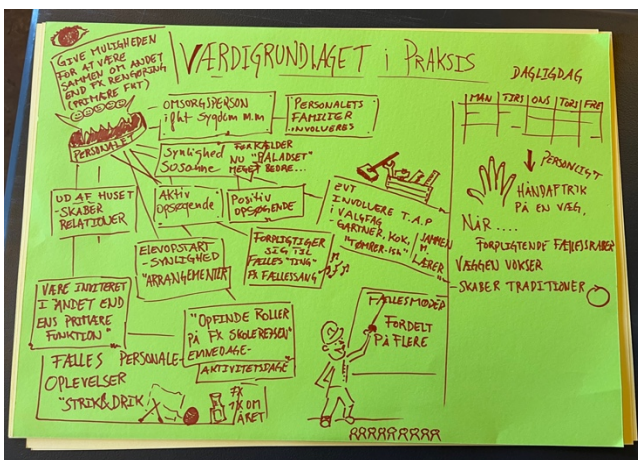 VÆRDIGRUNDLAGET i PRAKSIS
GIVE MULIGHEDEN
FOR AT VÆRE
SAMMEN OM ANDET
END FX RENGØRING
(PRIMÆRE FKT)
PERSONALET
OMSORGSPERSON
ifht Sygdom m.m
PERSONALETS
FAMILIER
INVOLVERES
Synlighed
Sosanne
FORKÆLDER
NU "PALADSET"
MEGET BEDRE...
UD AF HUSET
-SKABER
RELATIONER
AKTIV
OPSØGENDE
POSITIV
OPSØGENDE
EVT
INVOLVERE T.A.P
i VALGFAG
GARTNER, KOK,
"TØMRER-ISH"
SAMMEN
M.
LÆRER
ELEVOPSTART
-SYNLIGHED
"ARRANGEMENTER"
FORPLIGTIGER
SIG TIL
FÆLLES "TING"
FX FÆLLESSANG"
VÆRE INVITERET
I "ANDET END
ENS PRIMÆRE
FUNKTION"
"OPFINDE ROLLER
PÅ FX SKOLEREJSEN"
EMNEDAGE-
AKTIVITETSDAGE"
FÆLLES PERSONALE-
OPLEVELSER
"STRIK&DRIK"
FX
1X OM
ÅRET
FÆLLESMØDER
FORDELT
PÅ FLERE
DAGLIGDAG
MAN TIRS ONS TORS FRE
PERSONLIGT
HÅNDAFTRIK
PÅ EN VÆG.
NÅR....
FORPLIGTENDE FÆLLESSKABER
VÆGGEN VOKSER
-SKABER TRADITIONER